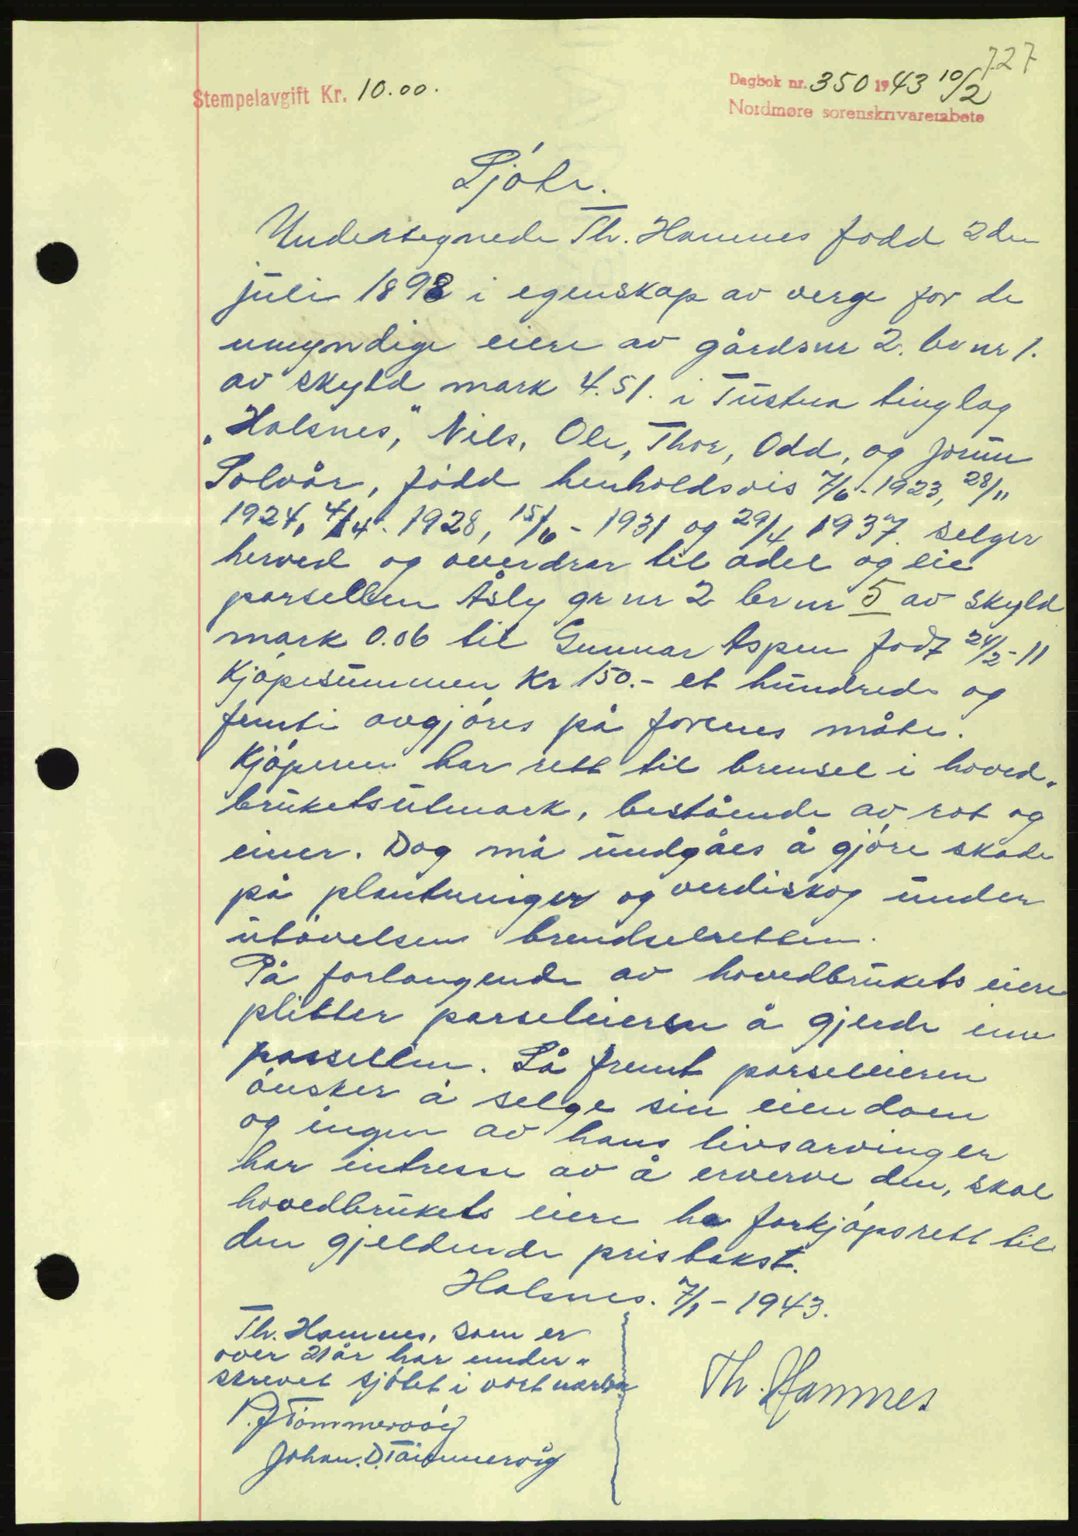 727
Stempelavgift Kr. 10.00.
Dagbok nr. 350 1943 10/2
Nordmøre sorenskrivarembete
Sjóte.
Undertegnede Th. Hamnes fodd 2den
juli 1898 i egenskap av verge for de
umyndige eiere av gårdsnr 2. brnr 1.
av skyld mark 4.51. i Tustna tinglag
"Halsnes," Nils, Ole, Thor, Odd, og Jorun
Solvår, född henholdsvis 7/6-1923, 28/11
1924, 4/4-1928, 15/6-1931 og 29/4 1937. selger
herved og overdrar til odel og eie
parsellen Åsly grnr 2 brnr 5 av skyld
mark 0.06 til Gunnar Aspen född 24/2-11
Kjópesummen Kr 150.- et hundrede og
femti avgjóres på forenes måte.
Kjóperen har rett til brensel i hoved-
bruketsutmark, bestående av rot og
einer. Dog må undgåes å gjóre skade
på plantninger og verdiskog under
utövelsen brendselretten.
På forlangende av hovedbrukets eiere
plikter parseleieren å gjerde inn
parsellen. Så fremt parseleieren
ónsker å selge sin eiendom
og ingen av hans livsarvinger
har intresse av å erverve den, skal
hovedbrukets eiere ha forkjópsrett til
den gjeldende pristakst.
Halsnes. 7/1-1943.
Th. Hamnes, som er
over 21 år har under-
skrevet sjötet i vort nærvær
Th. Hamnes
P. J Tömmervåg
Johan. D. Tömmervåg